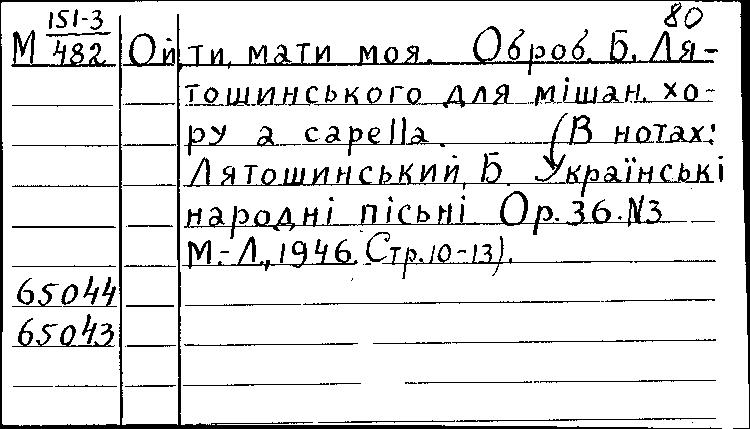 80
М 151-3/482 Ой, ти, мати моя. Оброб. Б. Ля-
тошинського для мішан. хо-
ру a capella. (В нотах:
Лятошинський, Б. Українські
народні пісьні Op. 36. N3
М.-Л., 1946. Стр. 10-13).
65044
65043